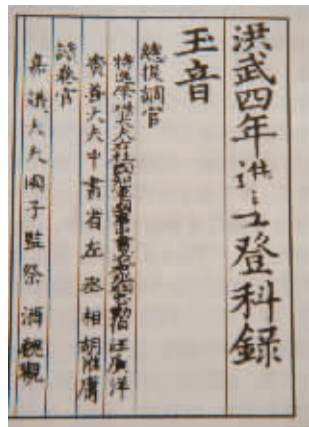 洪武四年進士登科錄
玉音
總提調官
特進榮祿大夫柱國知軍國事中書右丞相忠勤伯汪廣洋
資善大夫中書省左丞相胡惟庸
讀卷官
嘉議大夫國子監祭酒魏觀